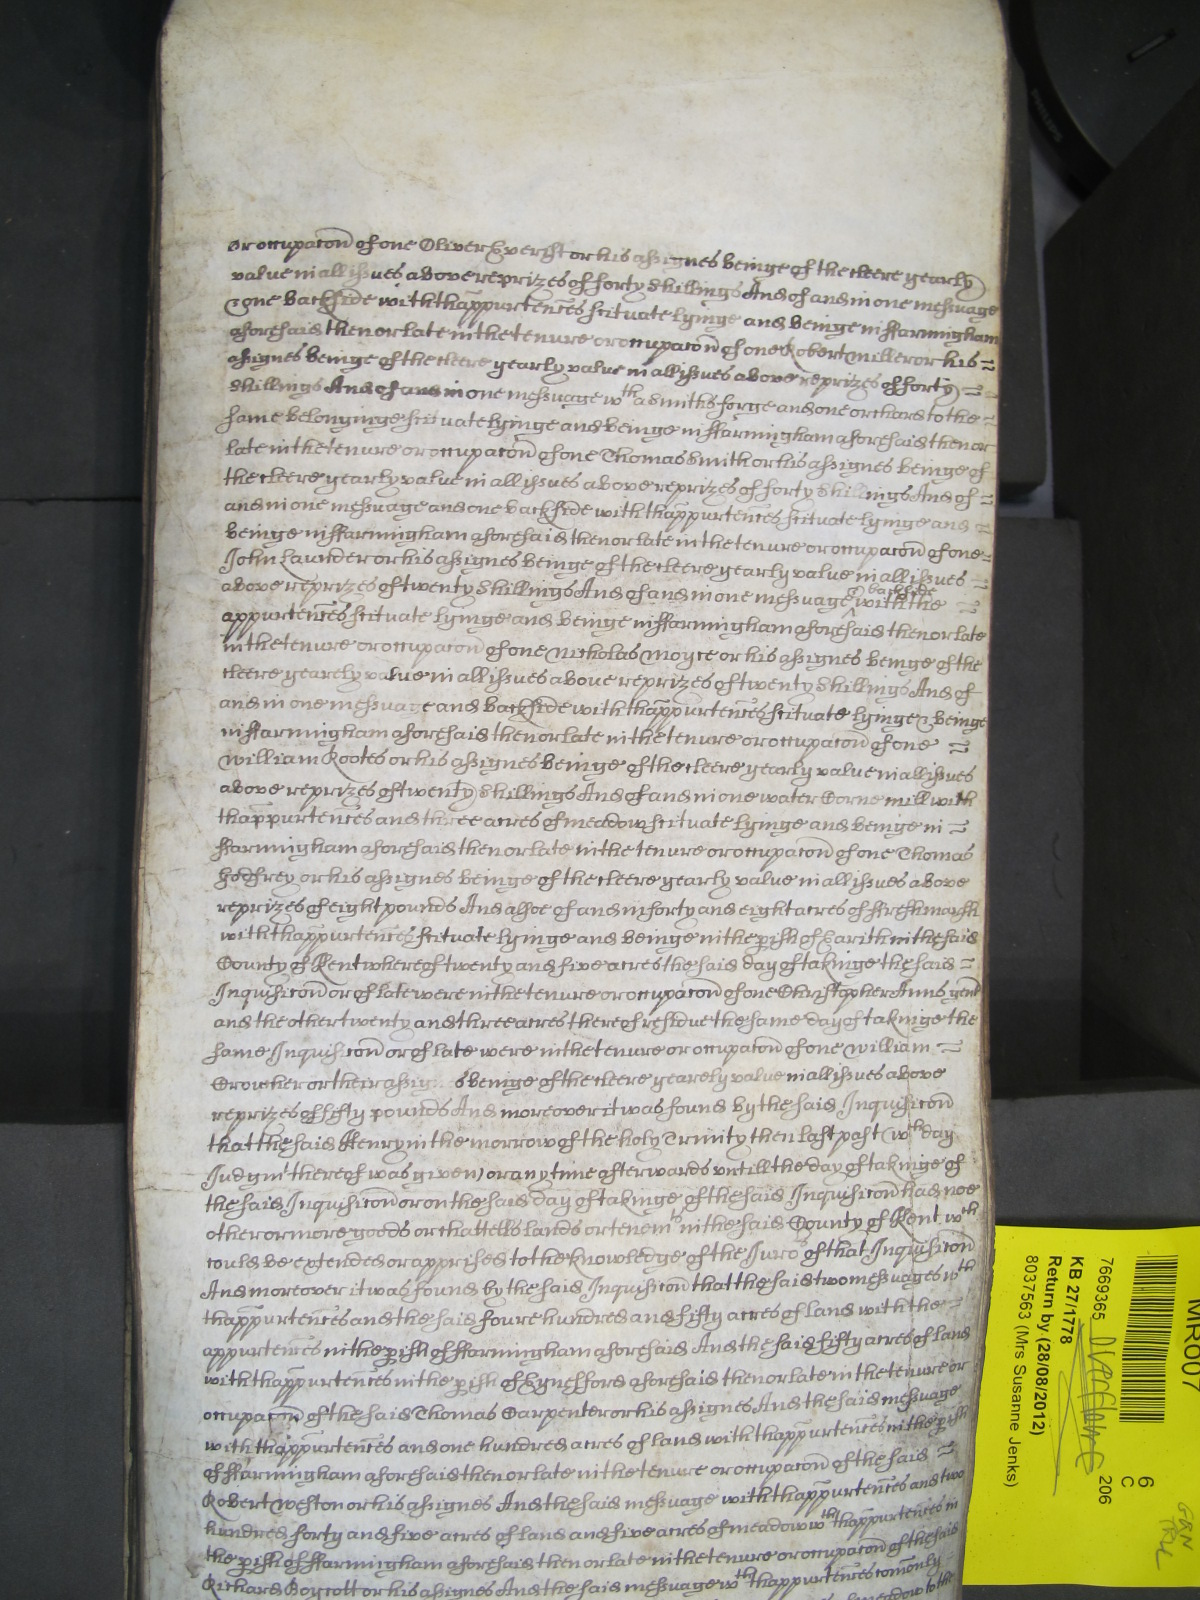 or occupacõn of one Oliver Everist or his assignes beinge of the cleere yearly
value in all issues above reprizes of forty shillings And of and in one messuage
& one backside with thapp̃urtenc̃es scituate lyinge and beinge in ffarmingham
aforesaid then or late in the tenure or occupacõn of one Robert Miller or his =
assignes beinge of the cleere yearly value in all issues above reprizes of forty =
shillings And of and in one messuage wth a smiths forge and one orchard to the =
same belonginge scituate lyinge and beinge in ffarmingham aforesaid then or
late in the tenure or occupacõn of one Thomas Smith or his assignes beinge of
the cleere yearly value in all issues above reprizes of forty shillings And of =
and in one messuage and one backside with thapp̃urtenc̃es scituate lyinge and =
beinge in ffarmingham aforesaid then or late in the tenure or occupacõn of one =
John Launder or his assignes beinge of the cleere yearly value in all issues =
above reprizes of twenty shillings And of and in one messuage & backside with the =
appurtenc̃es scituate lyinge and beinge in ffarmingham aforesaid then or late
in the tenure or occupacõn of one Nicholas Moyce or his assignes beinge of the
cleere yearely value in all issues above reprizes of twenty shillings And of
and in one messuage and backside with thapp̃urtenc̃es scituate lyinge & beinge
in ffarmingham aforesaid then or late in the tenure or occupacõn of one =
William Rootes or his assignes beinge of the cleere yearly value in all issues
above reprizes of twenty shillings And of and in one water Corne mill with
thapp̃urtenc̃es and three acres of meadow scituate lyinge and beinge in =
ffarmingham aforesaid then or late in the tenure or occupacõn of one Thomas
Godfrey or his assignes beinge of the cleere yearly value in all issues above
reprizes of eight pounds And alsoe of and in forty and eight acres of ffresh marsh
with thapp̃urtenc̃es scituate lyinge and beinge in the p̱ish of Earith in the said
County of Kent whereof twenty and five acres the said day of takinge the said =
Inquisicõn or of late were in the tenure or occupacõn of one Christopher Anns gent
and the other twenty and three acres thereof residue the same day of takinge the
same Inquisicõn or of late were in the tenure or occupacõn of one William =
Croucher or their assig s beinge of the cleere yearely value in all issues above
reprizes of fifty pounds And moreover it was found by the said Inquisicõn
that the said Henry in the morrow of the holy Trinity then last past (wch day
Judgmt thereof was given) or any time afterwards untill the day of takinge of
the said Inquisicõn or on the said day of takinge of the said Inquisicõn had noe
other or more goods or chattells lands or tenemts in the said County of Kent wch
could be extended or apprised to the knowledge of the Juro͏rs of that Inquisicõn
And moreover it was found by the said Inquisicõn that the said two messuages wth
thapp̃urtenc̃es and the said foure hundred and fifty acres of land with the =
appurtenc̃es in the p̱ish of ffarmingham aforesaid And the said fifty acres of land
with thapp̃urtenc̃es in the p̱ish of Eynesford aforesaid then or late in the tenure or
occupacõn of the said Thomas Carpenter or his assignes And the said messuage
with thapp̃urtenc̃es and one hundred acres of land with thapp̃urtenc̃es in the p̱ish
of ffarmingham aforesaid then or late in the tenure or occupacõn of the said =
Robert Weston or his assignes And the said messuage with thapp̃urtenc̃es and two
hundred forty and five acres of land and five acres of meadow wth thapp̃urtenc̃es in
the p̱ish of ffarmingham aforesaid then or late in the tenure or occupacõn of the said
Richard Boycott or his assignes And the said messuage wth thapp̃urtenc̃es com̃only
meadow to the
PHILIPS
MR007
6
C
206
7669365
KB 27/1778
Return by (28/08/2012)
8037563 (Mrs Susanne Jenks)